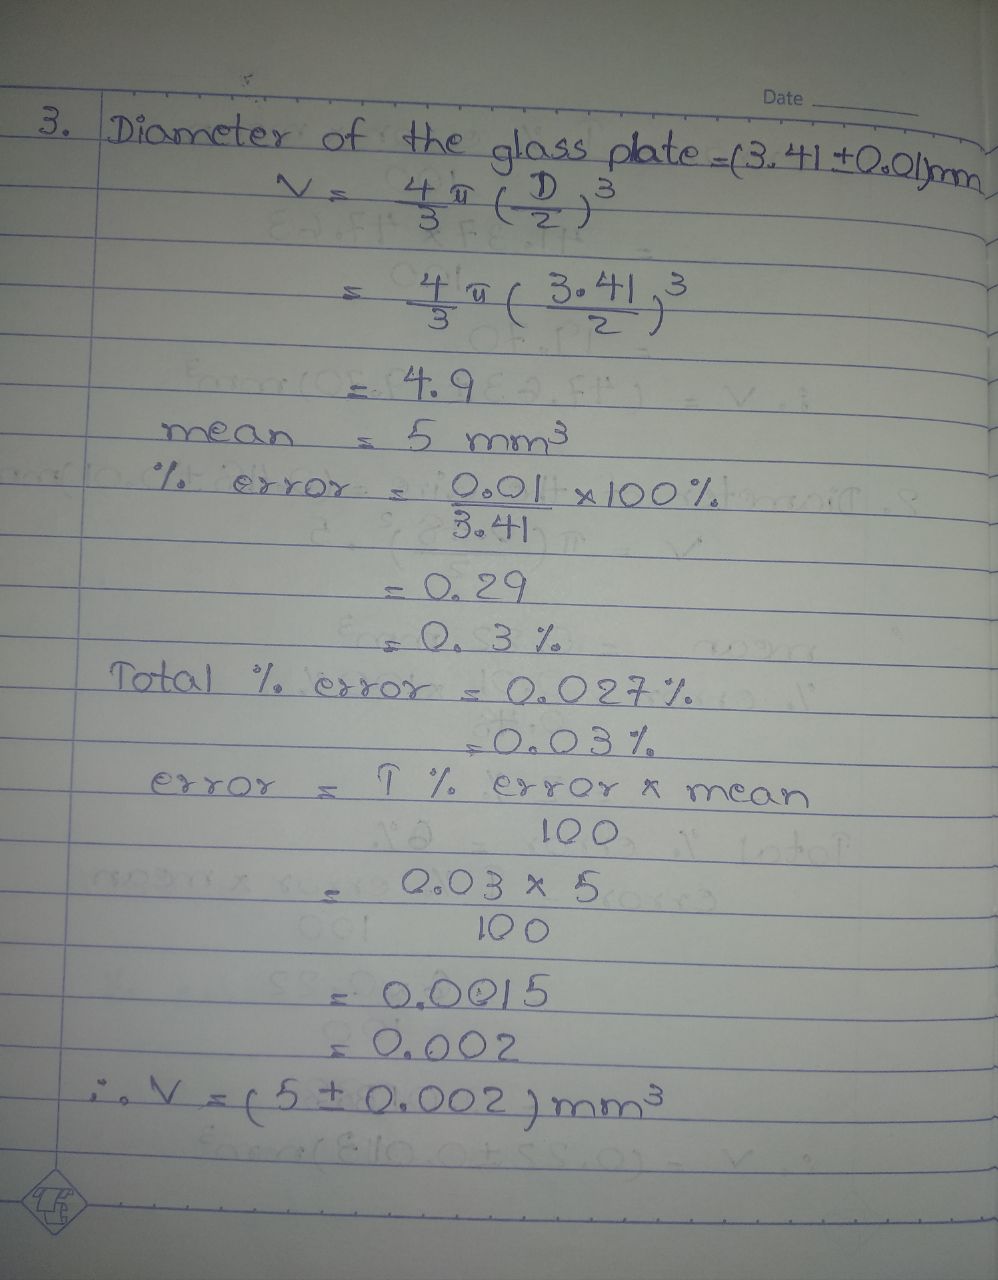 Date
3. Diameter of the glass plate = (3.41 ± 0.01)mm
V = 4/3 π (D/2)³
= 4/3 π (3.41/2)³
= 4.9
mean = 5 mm³
% error = 0.01/3.41 × 100%
= 0.29
= 0.3 %
Total % error = 0.027 %
= 0.03 %
error = T % error × mean
100
= 0.03 × 5
100
= 0.0015
= 0.002
∴ V = (5 ± 0.002) mm³